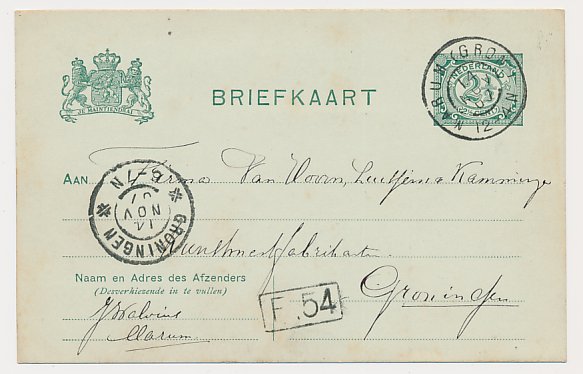 JE MAINTIENDRAI
BRIEFKAART
NEDERLAND
2½
MARUM (GRON)
12
AAN Firma Van Hoorn, Luitjens & Kamminga
Kunstmestfabrikanten
Groningen
GRONINGEN
5-7N
14 NOV 07
Naam en Adres des Afzenders
(Desverkiezende in te vullen)
J Walvius
Marum.
F. 54